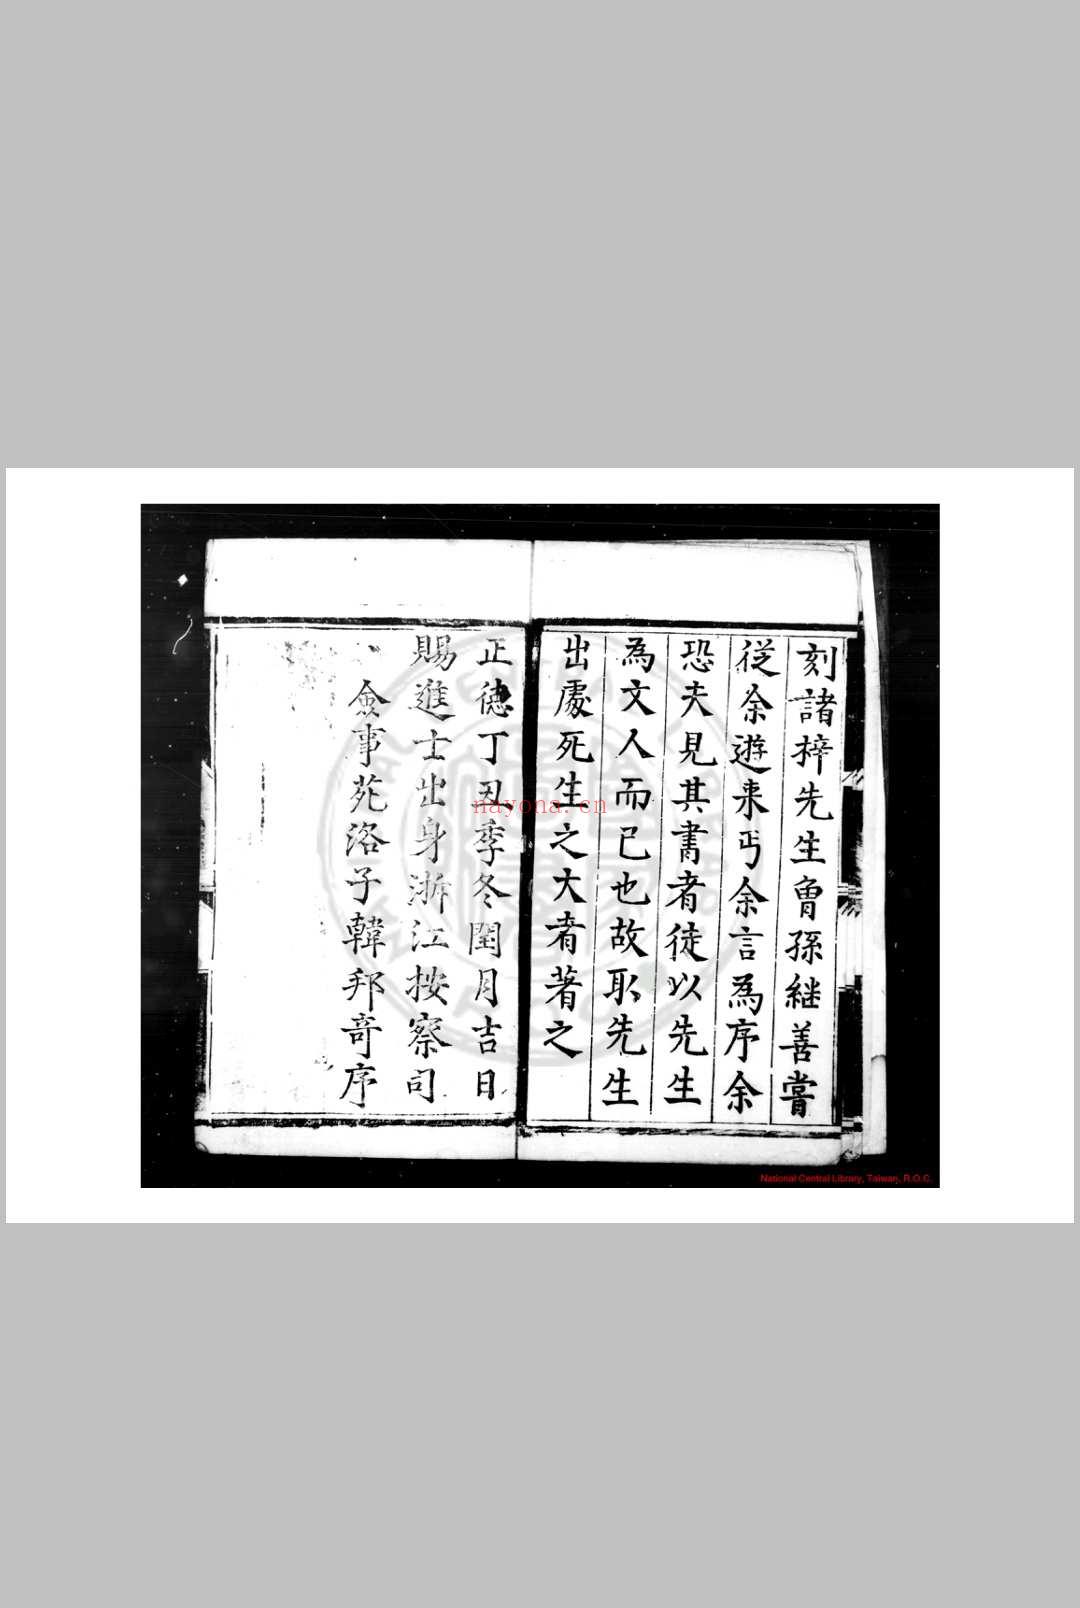 刻諸梓先生曾孫継善嘗
從余遊来丐余言為序余
恐夫見其書者徒以先生
為文人而已也故取先生
出處死生之大者著之
正德丁丑季冬閏月吉日
賜進士出身浙江按察司
僉事苑洛子韓邦奇序
nayona.cn
National Central Library, Taiwan, R.O.C.